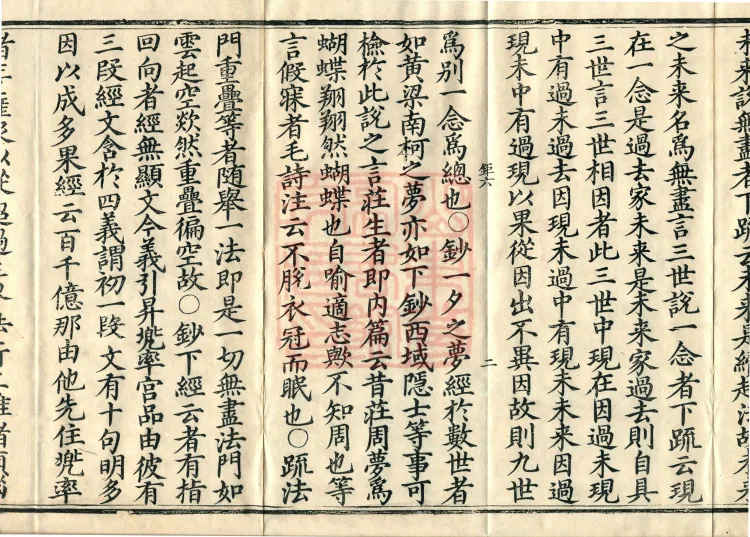 未來說無盡者下疏云未來是續起法故未來
之未來名爲無盡言三世說一念者下䟽云現
在一念是過去家未來是未來家過去則自具
三世言三世相因者此三世中現在因過未現
中有過未過去因現未過中有現未未來因過
現未中有過現以果從因出不異因故則九世
矩六
二
爲別一念爲總也〇鈔一夕之夢經於數世者
如黄梁南柯之夢亦如下鈔西域隱士等事可
檢於此說之言莊生者即内篇云昔莊周夢爲
蝴蝶翔翔然蝴蝶也自喻適志歟不知周也等
言假寐者毛詩注云不脫衣冠而眠也〇䟽法
門重疊等者随舉一法即是一切無盡法門如
雲起空欻然重疊徧空故〇鈔下經云者有指
回向者經無顯文今義引昇兠率宮品由彼有
三段經文含於四義謂初一段文有十句明多
因以成多果經云百千億那由他先住兠率